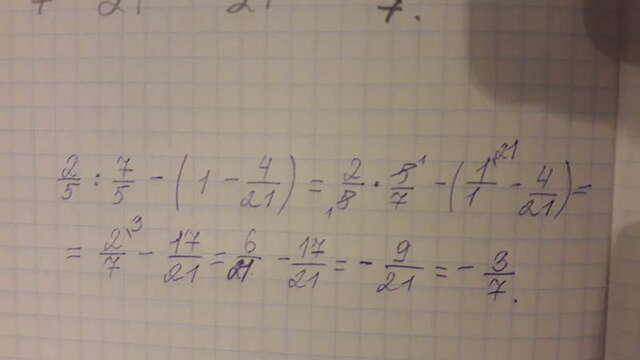 21 21 7.
2/5 : 7/5 - (1 - 4/21) = 2/5 · 5/7 - (1/1 - 4/21) =
= 2/7 - 17/21 = 6/21 - 17/21 = - 9/21 = - 3/7.